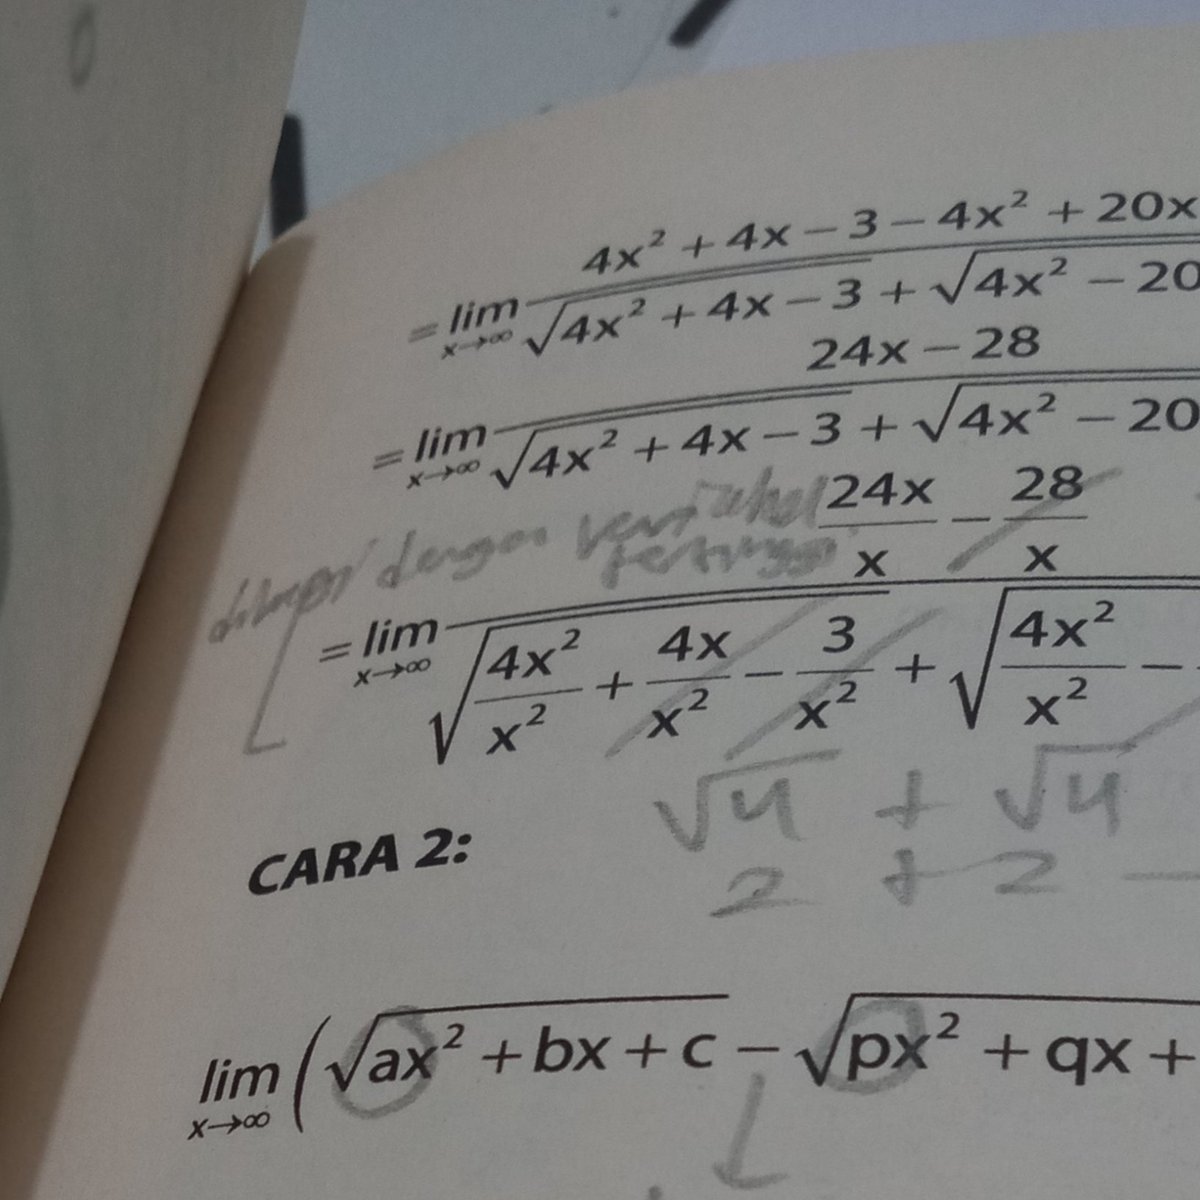 0
= lim x→∞ (4x² + 4x − 3 − 4x² + 20x) / (√(4x² + 4x − 3) + √(4x² − 20
= lim x→∞ (24x − 28) / (√(4x² + 4x − 3) + √(4x² − 20
dibagi dengan variabel
tertinggi
= lim x→∞ (24x/x − 28/x) / (√(4x²/x² + 4x/x² − 3/x²) + √(4x²/x² −
√4 + √4
2 + 2
CARA 2:
lim x→∞ (√(ax² + bx + c) − √(px² + qx +